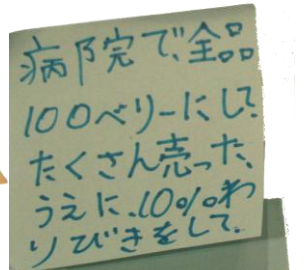 病院で、全品
100ベリーにして、
たくさん売った、
うえに、10%わ
りびきをして、